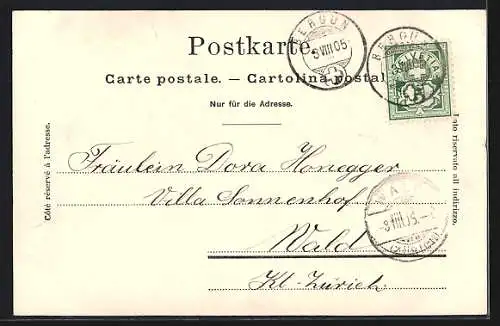 Postkarte.
BERGÜN
3 VIII 05
BERGÜN
HELVETIA
Carte postale. — Cartolina postal
Nur für die Adresse.
Côté réservé à l'adresse.
lato riservato all indirizzo.
Fräulein Dora Honegger
Villa Sonnenhof
WALD
-3 VIII 05.-
(ZÜRICH)
Wald
Kt. Zürich